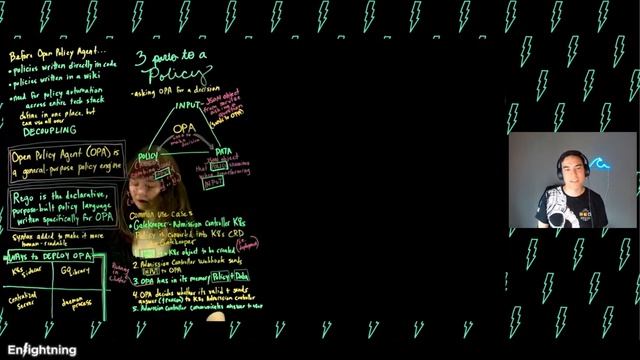 Before Open Policy Agent...
• policies written directly in code
• policies written in a wiki
• need for policy automation
across entire tech stack
define in one place, but
can use all over
DECOUPLING
Open Policy Agent (OPA) is
a general-purpose policy engine
Rego is the declarative,
purpose-built policy language
written specifically for OPA
Syntax added to make it more
human-readable
WAYS TO DEPLOY OPA
K8s Sidecar
GO library
Centralized
Server
daemon
process
3 parts to a
Policy
- asking OPA for a decision
INPUT
JSON object
from service
asking
OPA
decision
POLICY
DATA
JSON object
that
INPUT
Common Use Cases
• Gatekeeper - Admission Controller K8s
Policy is converted into K8s CRD
Gatekeeper
K8s object to be created
2. Admission Controller Webhook sends
to OPA
3. OPA has in its memory Policy + Data
4. OPA decides whether its valid + sends
answer (+reason) to K8s Admission Controller
5. Admission Controller communicates answer to user
Enlightning